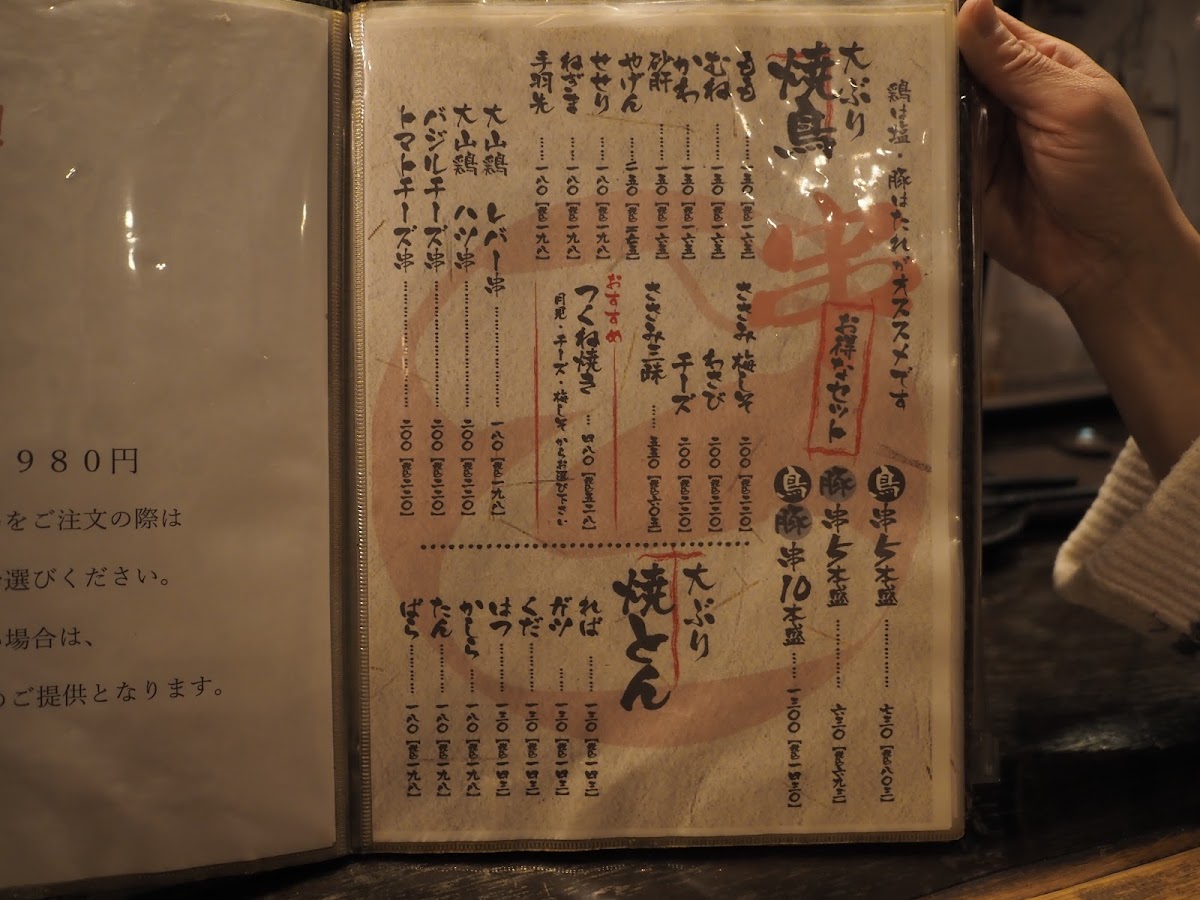 鶏は塩・豚はたれがオススメです
串
お得なセット
鳥串5本盛 七三〇［税込八〇三］
豚串5本盛 六三〇［税込六九三］
鳥豚串10本盛 一三〇〇［税込一四三〇］
大ぶり
焼鳥
もも 一五〇［税込一六五］
むね 一五〇［税込一六五］
かわ 一五〇［税込一六五］
砂肝 一五〇［税込一六五］
やげん 一五〇
せせり 一八〇［税込一九八］
ねぎま 一八〇［税込一九八］
手羽先 一八〇［税込一九八］
ささみ 梅しそ 二〇〇［税込二二〇］
わさび 二〇〇［税込二二〇］
チーズ 二〇〇［税込二二〇］
ささみ三昧 五五〇［税込六〇五］
おすすめ
つくね焼き 四八〇［税込五二八］
月見・チーズ・梅しそからお選び下さい
大山鶏 レバー串 一八〇［税込一九八］
大山鶏 ハツ串 二〇〇［税込二二〇］
バジルチーズ串 二〇〇［税込二二〇］
トマトチーズ串 二〇〇［税込二二〇］
大ぶり
焼とん
ればー 一三〇［税込一四三］
ガツ 一三〇［税込一四三］
くだ 一三〇［税込一四三］
はつ 一三〇［税込一四三］
かしら 一八〇［税込一九八］
たん 一八〇［税込一九八］
ばら 一八〇［税込一九八］
980円
をご注文の際は
選びください。
場合は、
ご提供となります。